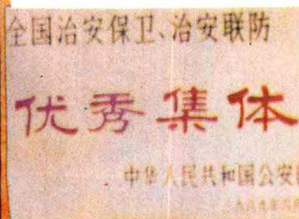 全国治安保卫、治安联防
优秀集体
中华人民共和国公安